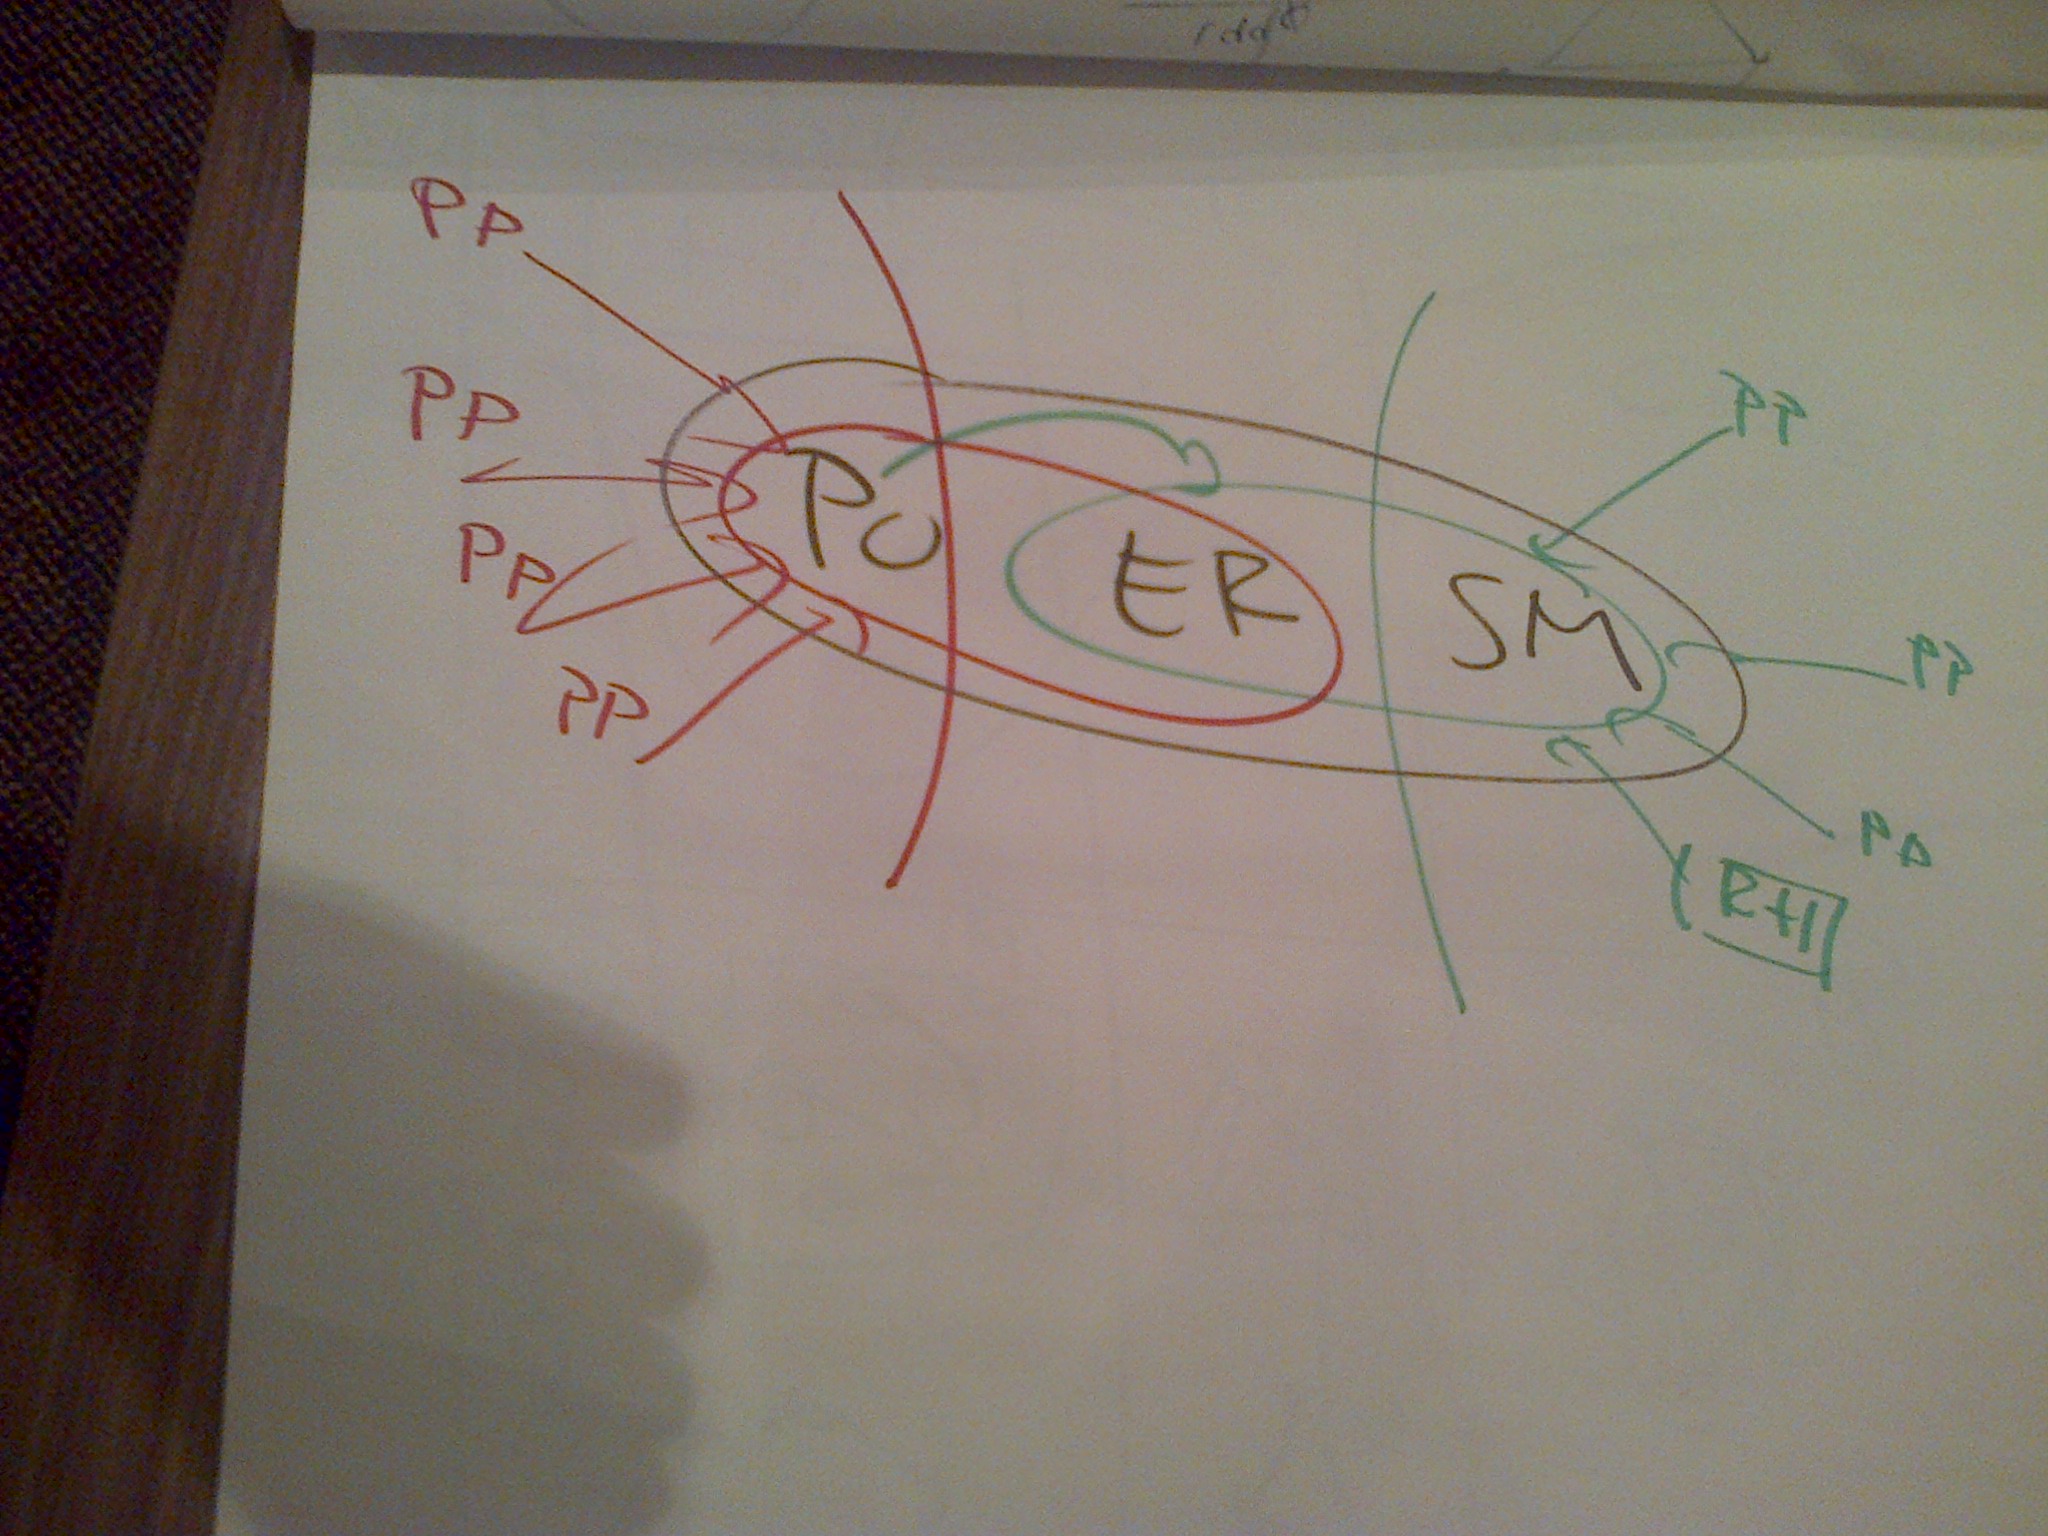 PP
PP
PP
PP
PO
ER
SM
PP
PP
PP
R+1